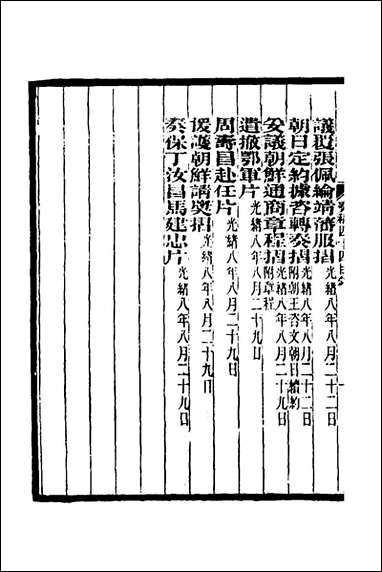 議覆張佩綸靖藩服摺光緒八年八月二十二日
朝日定約據咨轉奏摺附朝王咨文朝日續約光緒八年八月二十二日
妥議朝鮮通商章程摺附章程光緒八年八月二十九日
遣撤鄂軍片光緒八年八月二十九日
周壽昌赴任片光緒八年八月二十九日
援護朝鮮請獎摺光緒八年八月二十九日
奏保丁汝昌馬建忠片光緒八年八月二十九日